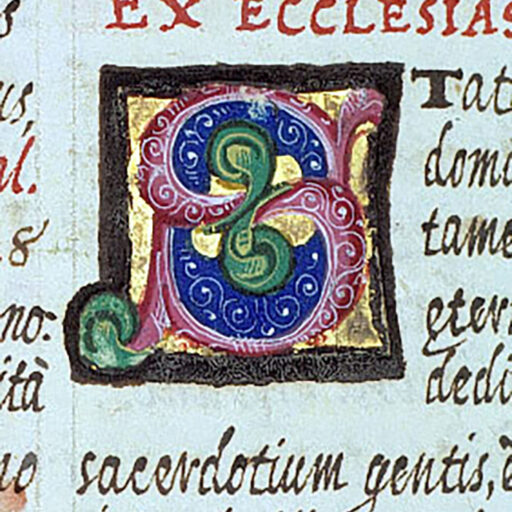 EX ECCLESIAS
us, STat
al. dom
18 tame
no: eter
ità dedi
no sacerdotium gentis,